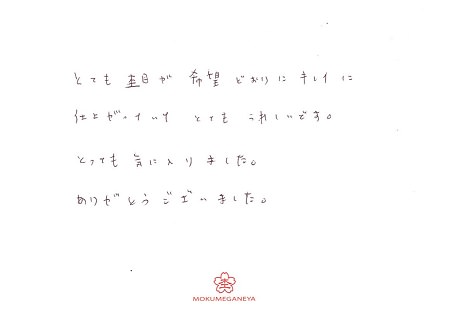 とても 杢目が 希望 どおりに キレイ に
仕上がっていて とても うれしいです。
とっても 気に入りました。
ありがとうございました。
杢
MOKUMEGANEYA